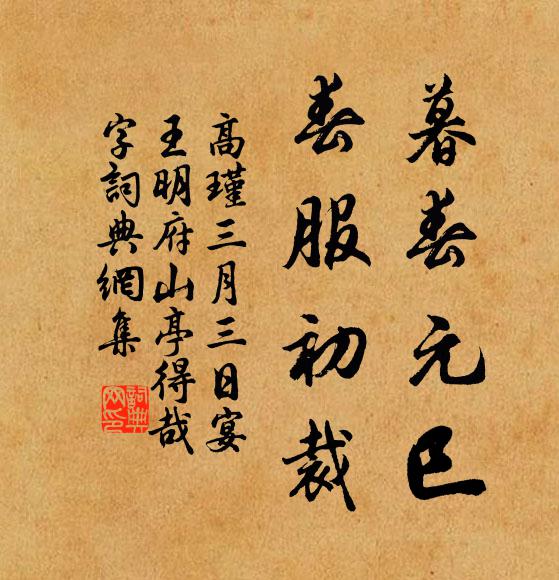 暮春元巳
春服初裁
高瑾三月三日宴
王明府山亭得哉
字詞典網集
詞典網印